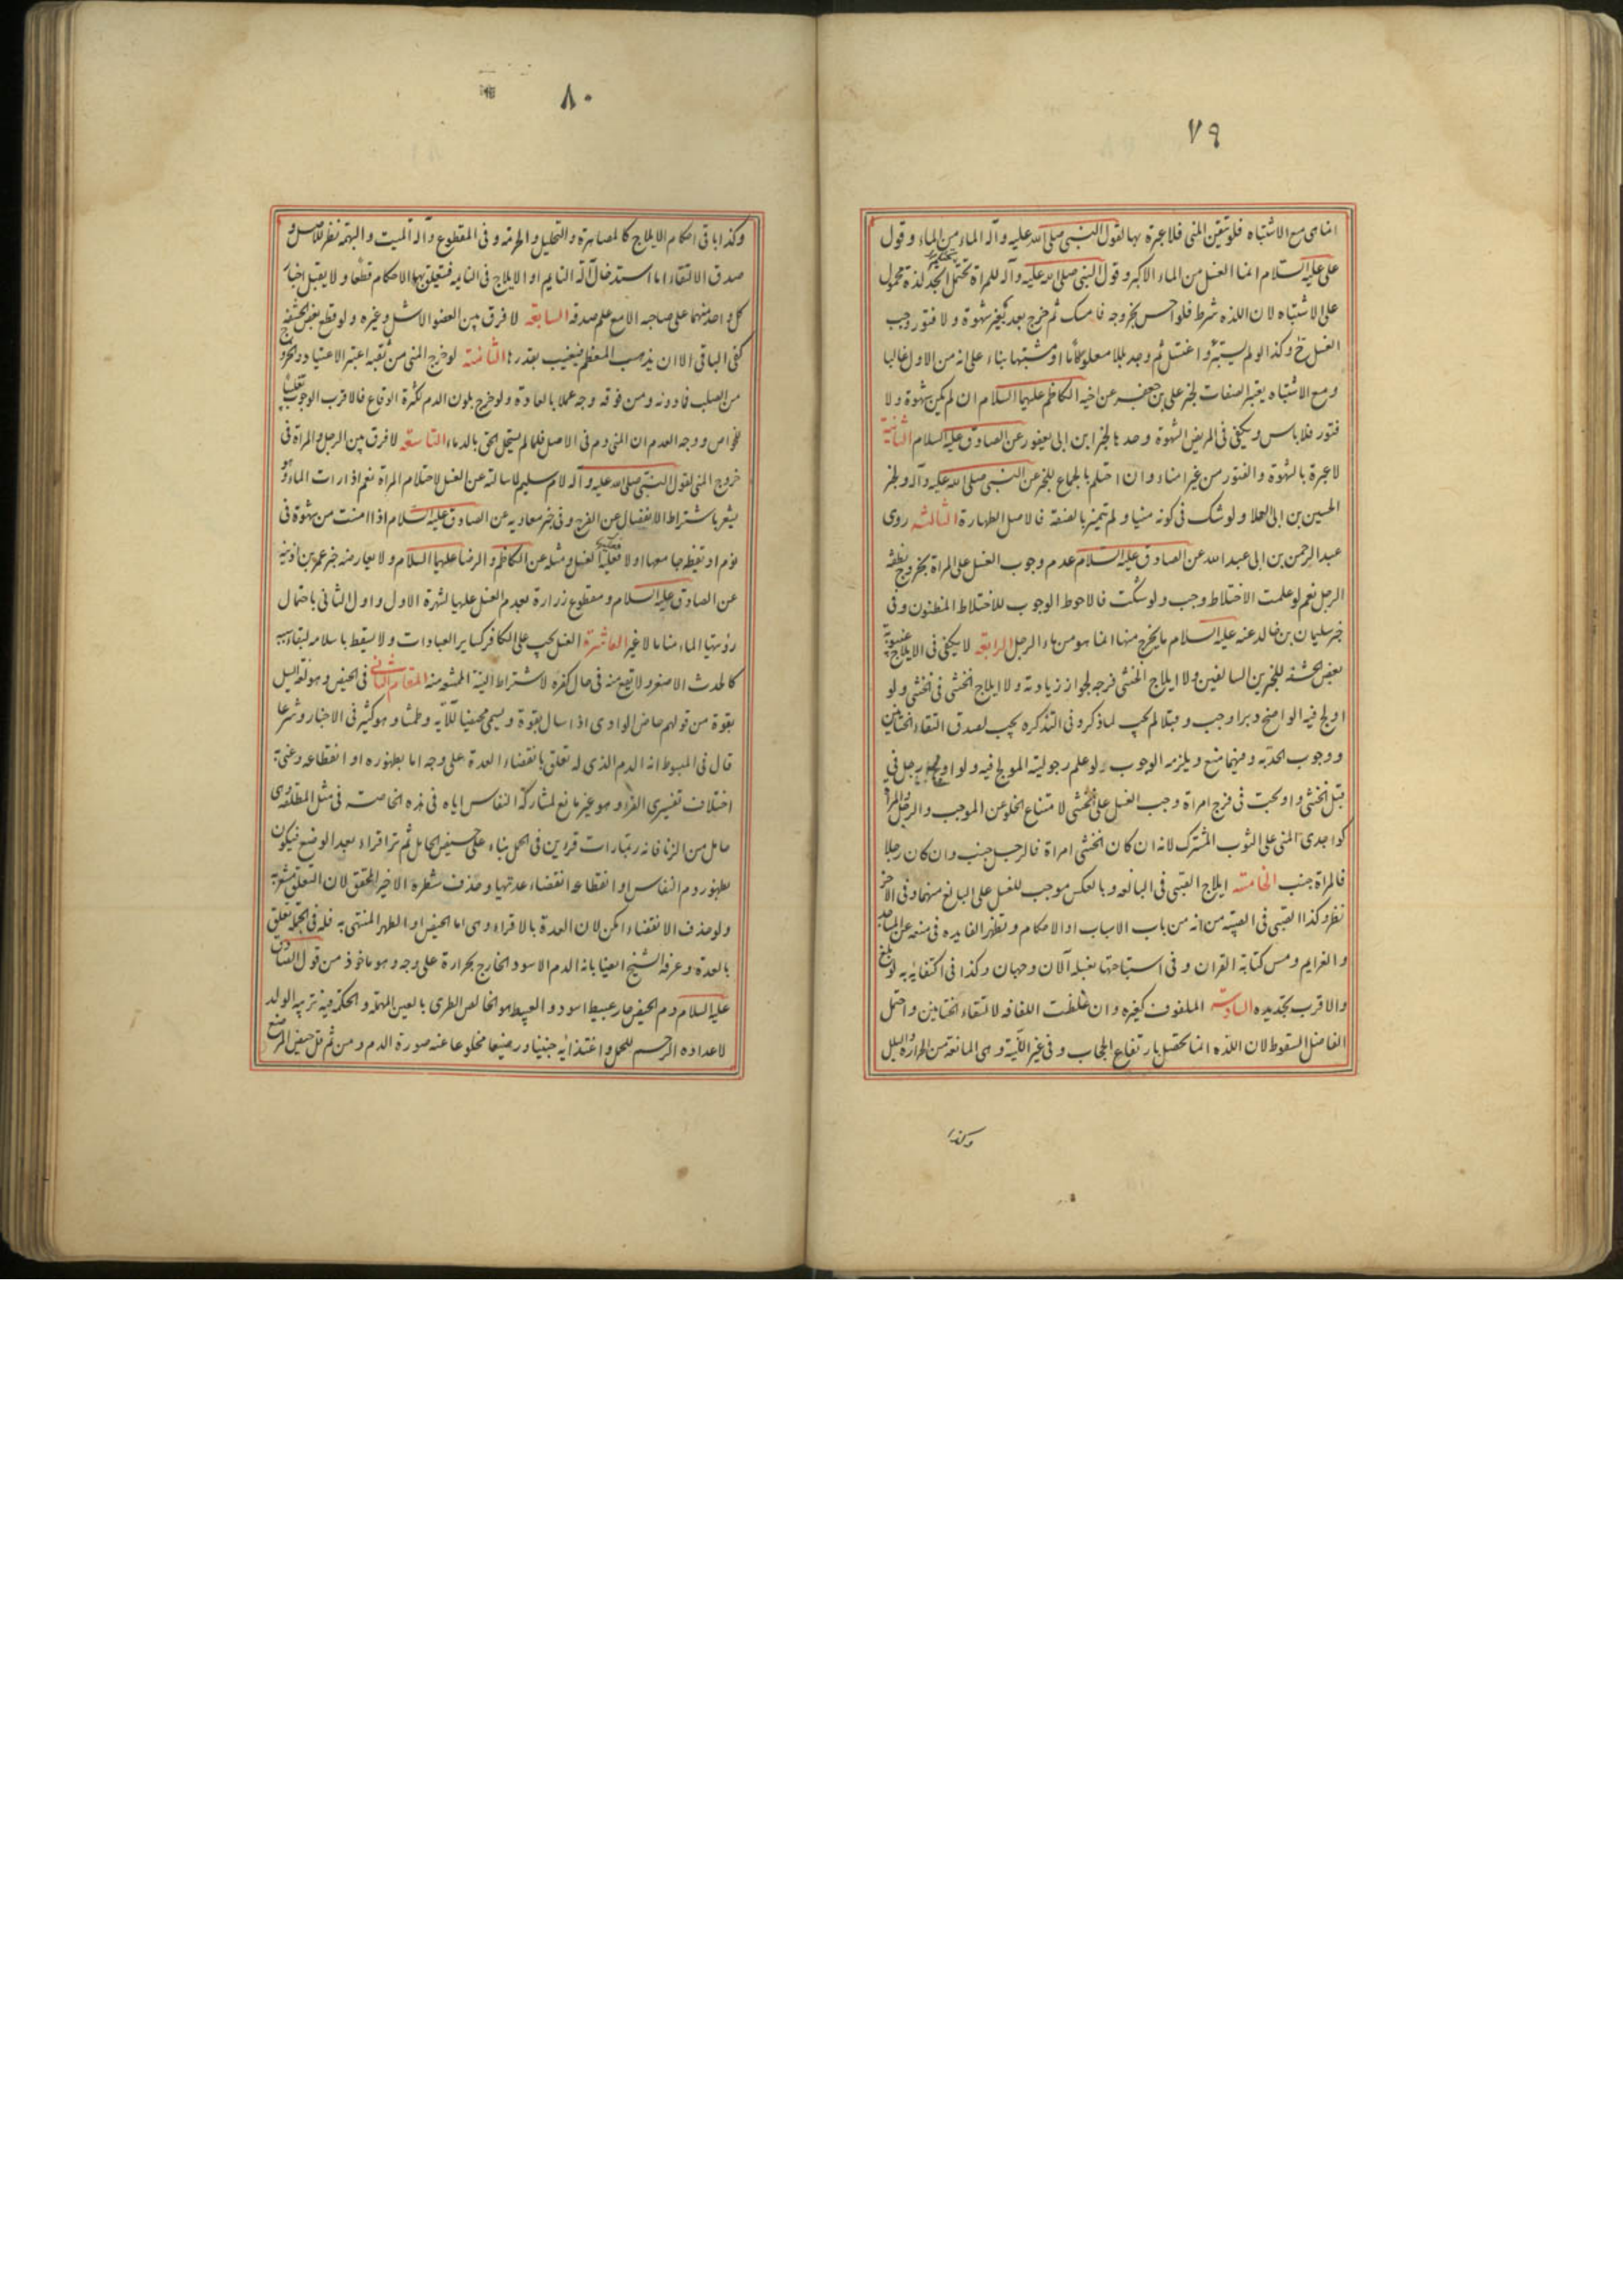 ٧٩
انما هى مع الاشتباه فلو تيقن المنى فلا عبرة بها لقول النبى صلى الله عليه وآله الماء من الماء وقول
على عليه السلام انما الغسل من الماء الاكبر وقول النبى صلى الله عليه وآله للمراة تحتلم اتجد لذة محمول
على الاشتباه لان اللذه شرط فلو احس بخروجه فامسك ثم خرج بعد بغير شهوة ولا فتور وجب
الغسل ح وكذا لو لم يستبرء واغتسل ثم وجد بللا معلوما او مشتبها بناء على انه من الاول غالبا
ومع الاشتباه يعتبر الصفات لخبر على بن جعفر عن اخيه الكاظم عليهما السلام ان لم يكن بشهوة ولا
فتور فلا باس ويكفى فى المريض الشهوة وحدها لخبر ابن ابى يعفور عن الصادق عليه السلام الثانية
لا عبرة بالشهوة والفتور من غير امناء وان احتلم بالجماع للخبر عن النبى صلى الله عليه وآله ولخبر
الحسين بن ابى العلا ولو شك فى كونه منيا ولم يتميز بالصفة فالاصل الطهارة الثالثه روى
عبد الرحمن بن ابى عبد الله عن الصادق عليه السلام عدم وجوب الغسل على المراة بخروج نطفة
الرجل نعم لو علمت الاختلاط وجب ولو شكت فالاحوط الوجوب للاختلاط المظنون وفى
خبر سليمان بن خالد عنه عليه السلام ما يخرج منها انما هو من ماء الرجل الرابعة لا يكفى فى الايلاج غيبوبة
بعض الحشفة للخبرين السالفين ولا ايلاج الخنثى فرجه لجواز زيادته ولا ايلاج الخنثى فى خنثى ولو
اولج فيه الواضح دبرا وجب وقبلا لم يجب لما ذكر وفى التذكره يجب لصدق التقاء الختانين
ووجوب الحد به وفيهما منع ويلزمه الوجوب لو علم رجوليته المولج فيه ولو اولج رجل فى
قبل الخنثى واولجت فى فرج امراة وجب الغسل على الخنثى لامتناع الخلو عن الموجب والرجل والمراة
كواجدى المنى على الثوب المشترك لانه ان كان الخنثى امراة فالرجل جنب وان كان رجلا
فالمراة جنب الخامسة ايلاج الصبى فى البالغه وبالعكس موجب للغسل على البالغ منهما وفى الآخر
نظر وكذا الصبى فى الصبية من انه من باب الاسباب او الاحكام وتظهر الفايده فى منعه عن المساجد
والعزايم ومس كتابة القرآن وفى استباحتها بغسله الآن وجهان وكذا فى اكتفائه به لو بلغ
والاقرب تجديده السادسة الملفوف كغيره وان غلظت اللفافه لالتقاء الختانين واحتمل
الفاضل السقوط لان اللذه انما تحصل بارتفاع الحجاب وفى غير اللينة وهى المانعة من الحرارة والبلل
وكذا
٨٠
وكذا باقى احكام الايلاج كالمصاهرة والتحليل والحرمة وفى المقطوع وآلة الميت والبهيمة نظر للاصل و
صدق الالتقاء اما استدخال آلة النايم او الايلاج فى النايمه فيتعلق بهما الاحكام قطعا ولا يقبل اخبار
كل واحد منهما على صاحبه الا مع علم صدقه السابعه لا فرق بين العضو الاشل وغيره ولو قطع بعض الحشفة
كفى الباقى الا ان يذهب المعظم فيغيب بقدرها الثامنة لو خرج المنى من ثقبه اعتبر الاعتياد والخروج
من الصلب فما دونه ومن فوقه وجه عملا بالعادة ولو خرج بلون الدم لكثرة الوقاع فالاقرب الوجوب تغليبا
للخواص ووجه العدم ان المنى دم فى الاصل فلما لم يستحل الحق بالدماء التاسعة لا فرق بين الرجل والمراة فى
خروج المنى لقول النبى صلى الله عليه وآله لام سليم لما سالته عن الغسل لاحتلام المراة نعم اذا رات الماء وهو
يشعر باشتراط الانفصال عن الفرج وفى خبر معاويه عن الصادق عليه السلام اذا امنت من شهوة فى
نوم او يقظه جامعها او لا فعليها الغسل ومثله عن الكاظم والرضا عليهما السلام ولا يعارضه خبر عمر بن اذينه
عن الصادق عليه السلام ومقطوع زرارة بعدم الغسل عليها لشهرة الاول واول الثانى باحتمال
رؤيتها الماء مناما لا غير العاشرة الغسل يجب على الكافر كساير العبادات ولا يسقط باسلامه لبقاء سببه
كالحدث الاصغر ولا يقع منه فى حال كفره لاشتراط النية الممتنعة منه المقام الثانى فى الحيض وهو لغة السيل
بقوة من قولهم حاض الوادى اذا سال بقوة ويسمى محيضا للآية وطمثا وهو كثير فى الاخبار وشرعا
قال فى المبسوط انه الدم الذى له تعلق بانقضاء العدة على وجه اما بظهوره او انقطاعه وعنى به
اختلاف تفسيرى القرء وهو غير مانع لمشاركة النفاس اياه فى هذه الخاصة فى مثل المطلقة وهى
حامل من الزنا فانه ربما رات قرئين فى الحمل بناء على حيض الحامل ثم ترا قراء بعد الوضع فيكون
بظهور دم النفاس او انقطاعه انقضاء عدتها وحذف شطره الاخير المحقق لان التعلق مشعر به
ولو حذف الانقضاء امكن لان العدة بالاقراء وهى اما الحيض او الطهر المنتهى به فله فى الجملة تعلق
بالعدة وعرفه الشيخ ايضا بانه الدم الاسود الخارج بحرارة على وجه وهو ماخوذ من قول الصادق
عليه السلام دم الحيض حار عبيط اسود والعبيط هو الخالص الطرى بالعين المهملة والحكمة فيه تربيه الولد
لاعداده الرحم للحمل واغتذائه جنينا ورضيعا مخلوعا عنه صورة الدم ومن ثم قل حيض المرضع